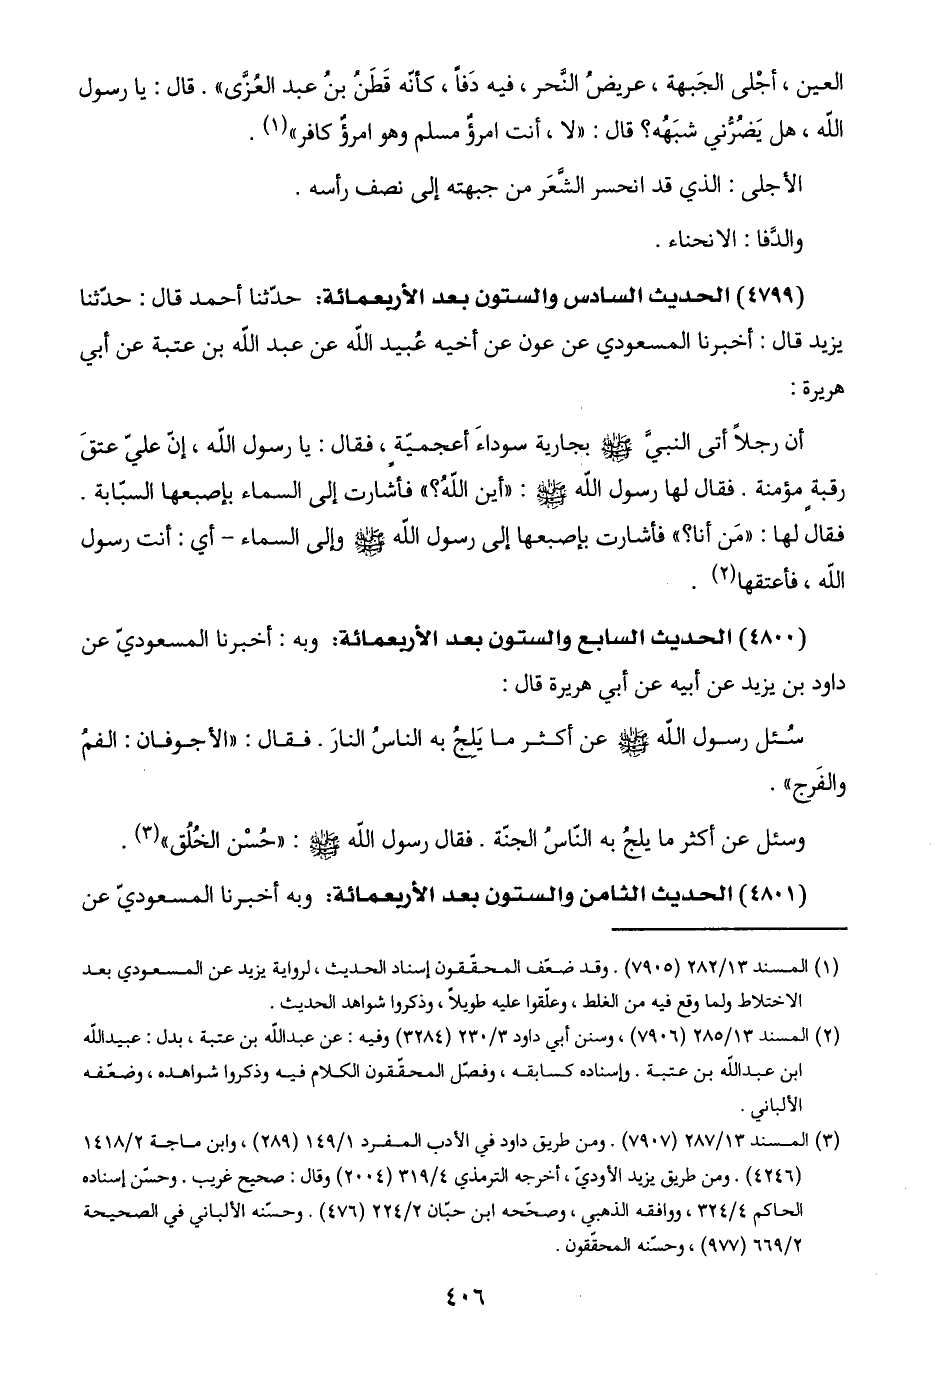 العين ، أجْلى الجَبهة ، عريضُ النَّحر ، فيه دَفاً ، كأنّه قَطَنُ بنُ عبد العُزَّى» . قال : يا رسول
الله ، هل يَضُرُّني شبَهُه؟ قال : «لا ، أنت امرؤٌ مسلم وهو امرؤٌ كافر»(١) .
الأجلى : الذي قد انحسر الشَّعَر من جبهته إلى نصف رأسه .
والدَّفا : الانحناء .
(٤٧٩٩) الحديث السادس والستون بعد الأربعمائة: حدّثنا أحمد قال : حدّثنا
يزيد قال : أخبرنا المسعودي عن عون عن أخيه عُبيد الله عن عبد الله بن عتبة عن أبي
هريرة :
أن رجلاً أتى النبيَّ ﷺ بجارية سوداءَ أعجميّةٍ ، فقال : يا رسول الله ، إنّ عليّ عتقَ
رقبةٍ مؤمنة . فقال لها رسول الله ﷺ : «أين اللهُ؟» فأشارت إلى السماء بإصبعها السبّابة .
فقال لها : «مَن أنا؟» فأشارت بإصبعها إلى رسول الله ﷺ وإلى السماء – أي : أنت رسول
الله ، فأعتقها(٢) .
(٤٨٠٠) الحديث السابع والستون بعد الأربعمائة: وبه : أخبرنا المسعوديّ عن
داود بن يزيد عن أبيه عن أبي هريرة قال :
سُئل رسول الله ﷺ عن أكثر ما يَلِجُ به الناسُ النارَ . فقال : «الأجوفان : الفمُ
والفَرج» .
وسئل عن أكثر ما يلجُ به النّاسُ الجنّة . فقال رسول الله ﷺ : «حُسْن الخُلُق»(٣) .
(٤٨٠١) الحديث الثامن والستون بعد الأربعمائة: وبه أخبرنا المسعوديّ عن
(١) المسند ٢٨٢/١٣ (٧٩٠٥) . وقد ضعّف المحقّقون إسناد الحديث ، لرواية يزيد عن المسعودي بعد
الاختلاط ولما وقع فيه من الغلط ، وعلّقوا عليه طويلاً ، وذكروا شواهد الحديث .
(٢) المسند ٢٨٥/١٣ (٧٩٠٦) ، وسنن أبي داود ٢٣٠/٣ (٣٢٨٤) وفيه : عن عبدالله بن عتبة ، بدل : عبيدالله
ابن عبدالله بن عتبة . وإسناده كسابقه ، وفصّل المحقّقون الكلام فيه وذكروا شواهده ، وضعّفه
الألباني .
(٣) المسند ٢٨٧/١٣ (٧٩٠٧) . ومن طريق داود في الأدب المفرد ١٤٩/١ (٢٨٩) ، وابن ماجة ١٤١٨/٢
(٤٢٤٦) . ومن طريق يزيد الأوديّ ، أخرجه الترمذي ٣١٩/٤ (٢٠٠٤) وقال : صحيح غريب . وحسّن إسناده
الحاكم ٣٢٤/٤ ، ووافقه الذهبي ، وصحّحه ابن حبّان ٢٢٤/٢ (٤٧٦) . وحسّنه الألباني في الصحيحة
٦٦٩/٢ (٩٧٧) ، وحسّنه المحقّقون .
٤٠٦